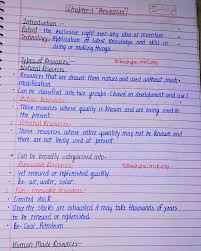 Chapter-1 "Resources"
Introduction:-
Patent - the exclusive right over any idea or invention
Technology - Application of latest knowledge and skill in
doing or making things.
Types of Resources:-
Natural Resources:-
Resources that are drawn from nature and used without much
modification.
Can be classified into two groups - (based on development and use)
Actual Resources
Those resources whose quantity is known and are being used in
the present.
Potential Resources
Those resources whose entire quantity may not be known and
there are not being used in the present.
Can be broadly categorised into-
Renewable Resources-
Get renewed or replenished quickly.
Ex- air, water, solar.
Non-renewable resources-
Limited stock
Once the stocks are exhausted it may take thousands of years
to be renewed or replenished.
Ex- Coal, Petroleum
Human Made Resources-